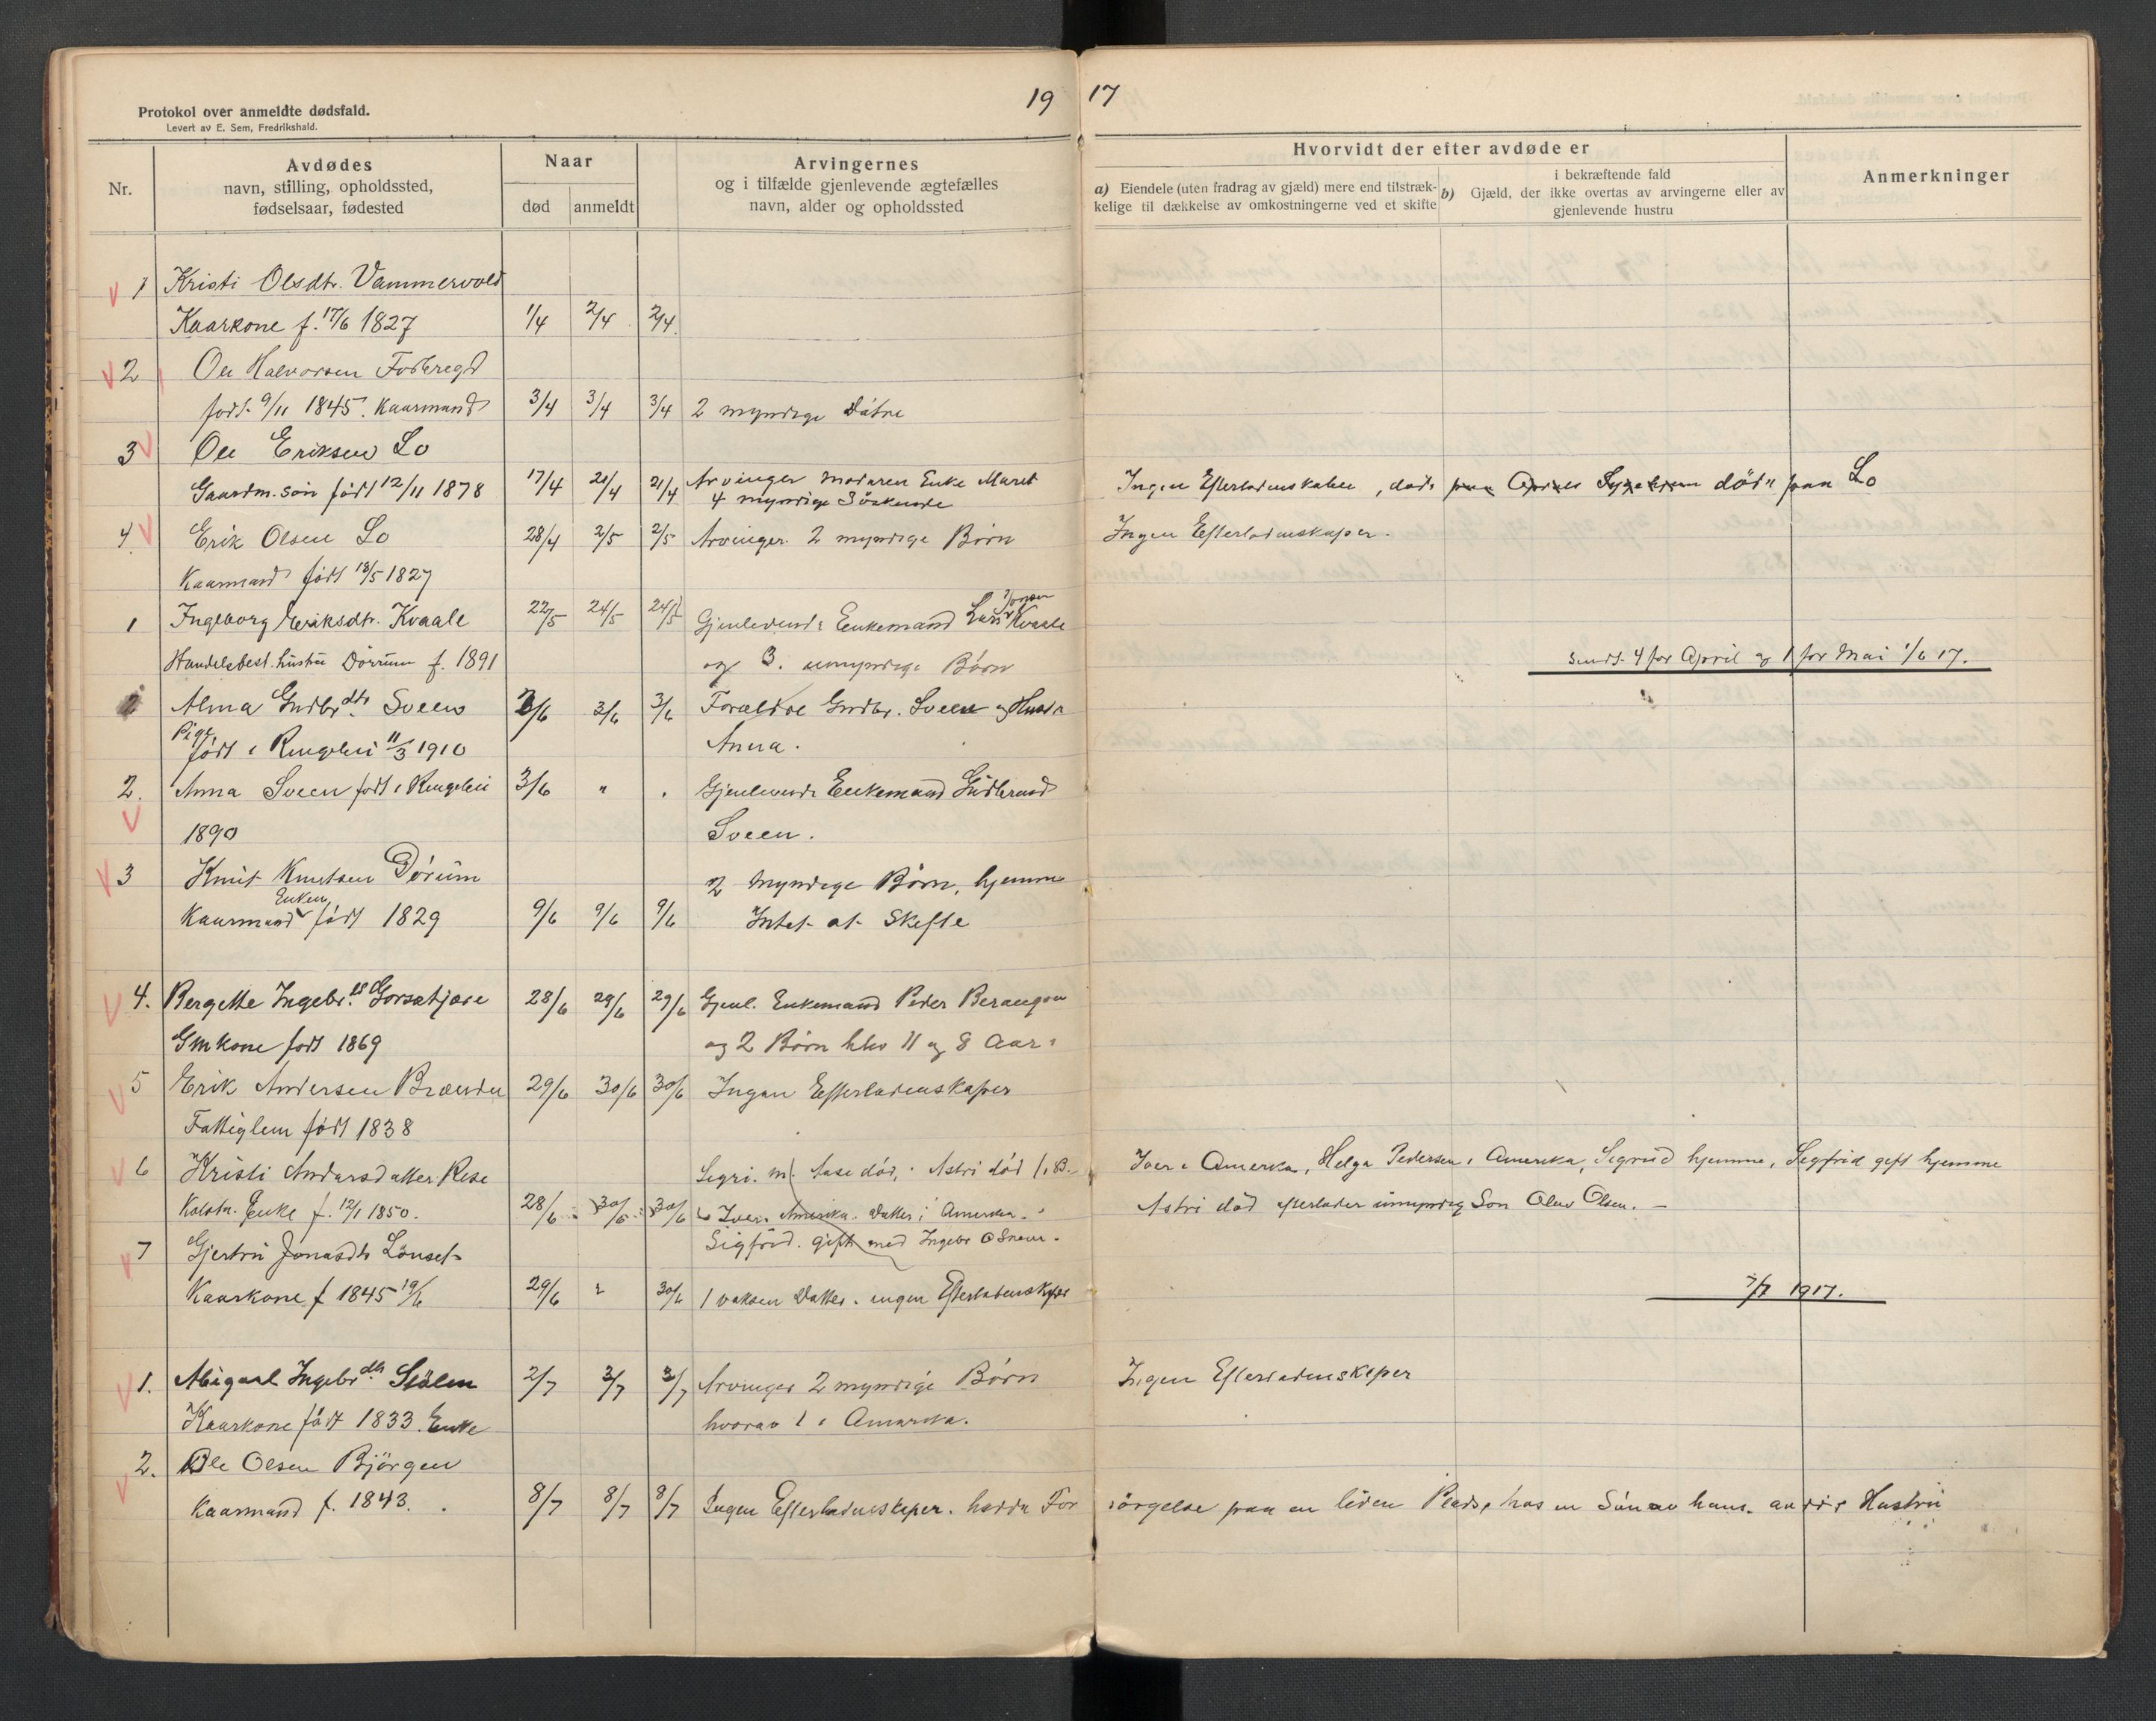 19 17
Protokol over anmeldte dødsfald.
Levert av E. Sem, Fredrikshald.
Nr.
Avdødes
navn, stilling, opholdssted,
fødselsaar, fødested
Naar
død anmeldt
Arvingernes
og i tilfælde gjenlevende ægtefælles
navn, alder og opholdssted
Hvorvidt der efter avdøde er
a) Eiendele (uten fradrag av gjæld) mere end tilstræk-
kelige til dækkelse av omkostningerne ved et skifte
b) i bekræftende fald
Gjæld, der ikke overtas av arvingerne eller av
gjenlevende hustru
Anmerkninger
1 Kristi Olsdtr. Vammervold
Kaarkone f. 17/6 1827 1/4 2/4 2/4
2 Ole Halvorsen
født 9/11 1845. Kaarmand 3/4 3/4 3/4 2 myndige Døtre
3 Ole Eriksen Lo
Gaardm. søn født 12/11 1878 17/4 20/4 21/4 Arvinger moderen Enke Marit
4 myndige Søskende
Ingen Efterladenskaber, døde paa døde paa Lo
4 Erik Olsen Lo 28/4 2/5 2/5 Arvinger 2 myndige Børn Ingen Efterladenskaper.
Kaarmand født 18/5 1827
1 Ingeborg Eriksdtr. Kvaale 22/5 24/5 24/5 Gjenlevende Enkemand Lars Kvaale
Handelsbest. hustru Dørrum f. 1891 og 3. umyndige Børn
Sendt 4 for April og 1 for Mai 1/6 17.
2 Alma Gudbr. dtr Sveen 2/6 3/6 3/6 Forældre Gudbr. Sveen og Hustru
Pige
født i Ringebu 11/3 1910 Anna.
2. Anna Sveen født i Ringebu 3/6 " " Gjenlevende Enkemand Gudbrand
1890 Sveen.
3 Knut Knutsen Dørum 2 Myndige Børn, hjemme
Enkem
Kaarmand født 1829 9/6 9/6 9/6 Intet at Skifte
4. Bergitte Ingebr. 28/6 29/6 29/6 Gjenl. Enkemand Peder
Gmkone født 1869 og 2 Børn hhv 11 og 8 Aar.
5 Erik Andersen Brænden 29/6 30/6 30/6 Ingen Efterladenskaper
Fattiglem født 1838
6 Kristi Andersdatter Rise Sigri. Aase død, Astri død
Enke f. 12/1 1850. 28/6 30/6 30/6 Iver. Amerika. Datter i Amerika.
Sigfrid. gift med Ingebr O
Iver i Amerika, Helga Pedersen i Amerika, Sigrid hjemme, Sigfrid gift hjemme
Astri død efterlader umyndig Søn Olav Olsen. -
7 Gjertru Jonasdtr Lønset
Kaarkone f 1845 19/6 29/6 " 30/6 1 voksen Datter. ingen Efterladenskaper
7/7 1917.
1. Abigael Ingebr. dtr. Stølen 2/7 3/7 3/7 Arvinger 2 myndige Børn Ingen Efterladenskaper
Kaarkone født 1833. Enke hvorav 1 i Amerika.
2. Ole Olsen Bjørgen
Kaarmand f. 1843. 8/7 8/7 8/7 Ingen Efterladenskaper. hadde For sørgelse paa en liden Plads, hos en Søn av hans andre Hustru